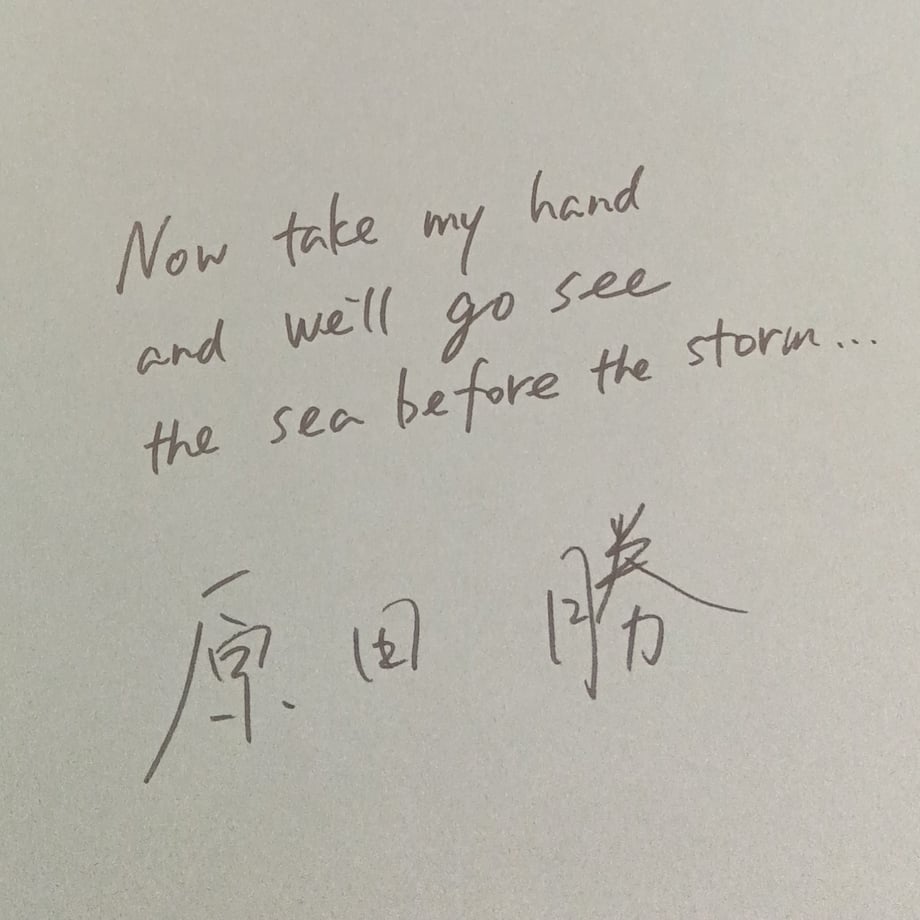 Now take my hand
and we'll go see
the sea before the storm...
原田 勝